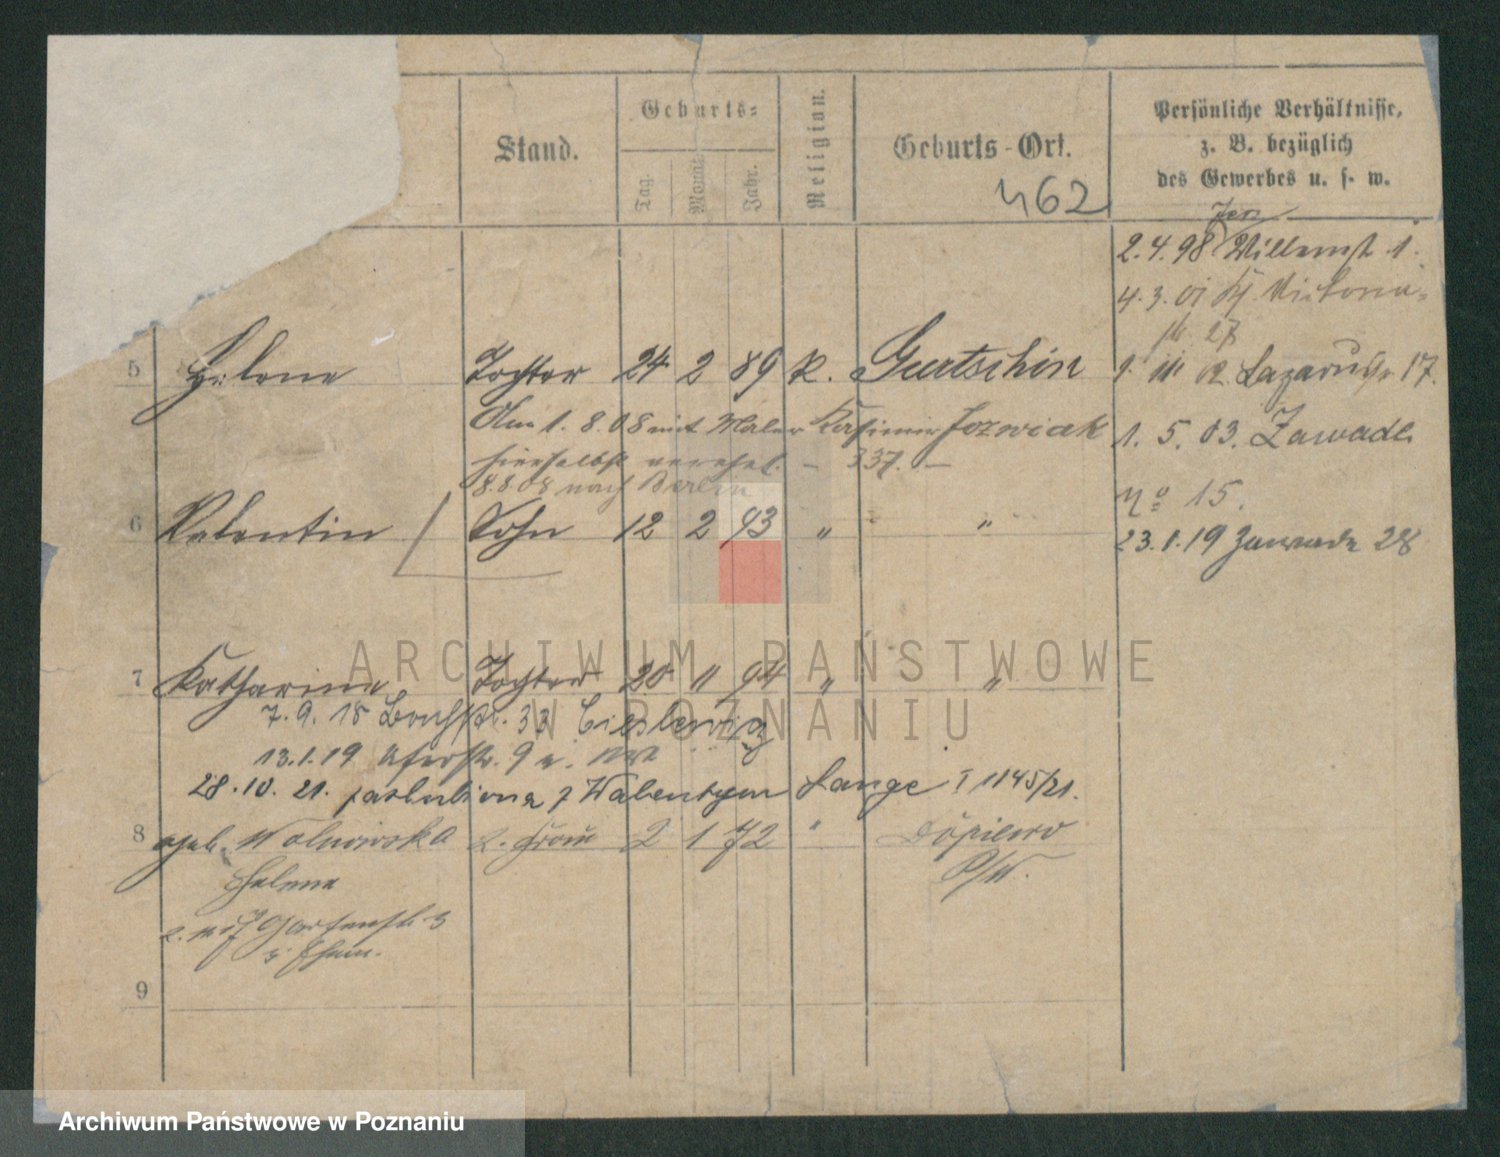 Stand.
Geburts-
Tag.
Monat
Jahr.
Religion.
Geburts-Ort.
Persönliche Verhältnisse,
z. B. bezüglich
des Gewerbes u. s. w.
462
2.4.98 Willemst 1.
4.3.01 Victoria-
27
5 Helene Tochter 24 2 89 K. Gurtschin
1. 02. Lazarusstr 17.
Am 1. 8. 08 mit Maler Kasimir Jozwiak
hierselbst verehel. – 337. –
8.8.08 nach Berlin
1. 5. 03. Zawade
No 15.
6 Valentin Sohn 12 2 93 " "
23.1.19 Zawade 28
7 Katharina Tochter 20 11 94 " "
7.9.18 33
13.1.19 9
28.10.21. z Walentym Lange I 1145/21.
8 geb. Wolniwska 2. Frau 2 1 72 " Dopiewo
Helene P/W.
Gartenstr. 3
9
ARCHIWUM PAŃSTWOWE
W POZNANIU
Archiwum Państwowe w Poznaniu